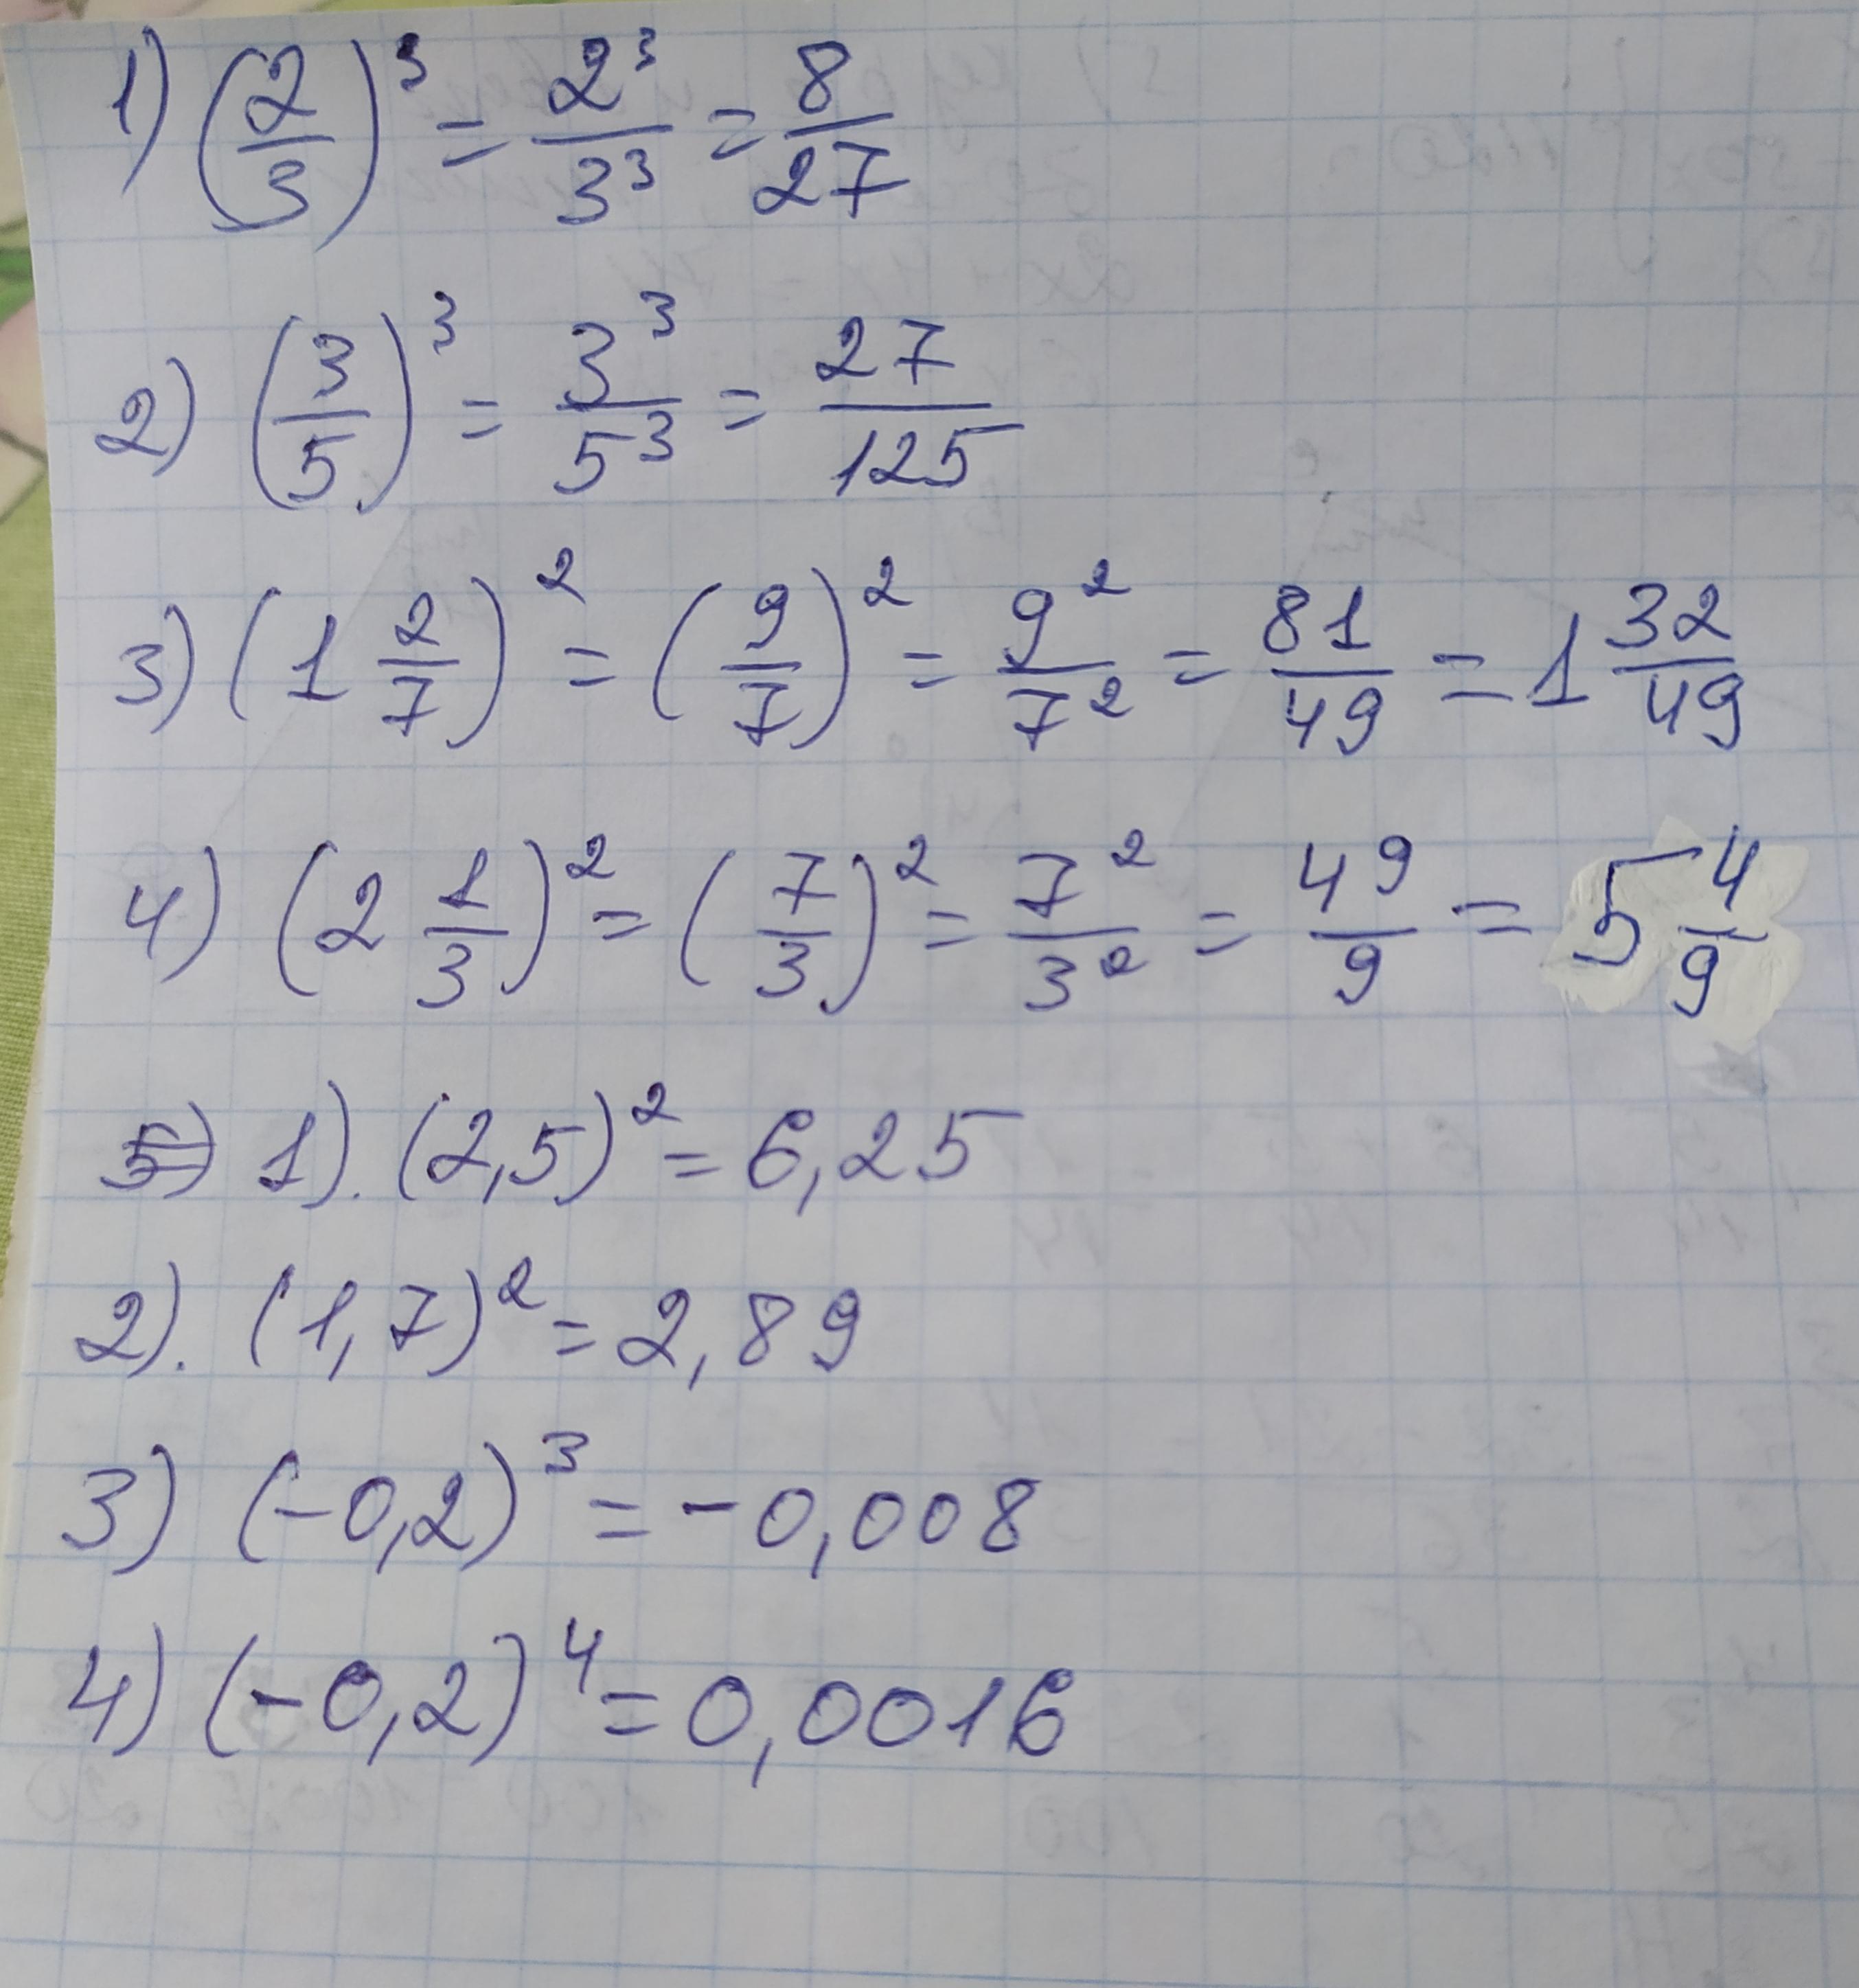 1) (2/3)³ = 2³/3³ = 8/27
2) (3/5)³ = 3³/5³ = 27/125
3) (1 2/7)² = (9/7)² = 9²/7² = 81/49 = 1 32/49
4) (2 1/3)² = (7/3)² = 7²/3² = 49/9 = 5 4/9
5) 1). (2,5)² = 6,25
2). (1,7)² = 2,89
3) (-0,2)³ = -0,008
4) (-0,2)⁴ = 0,0016